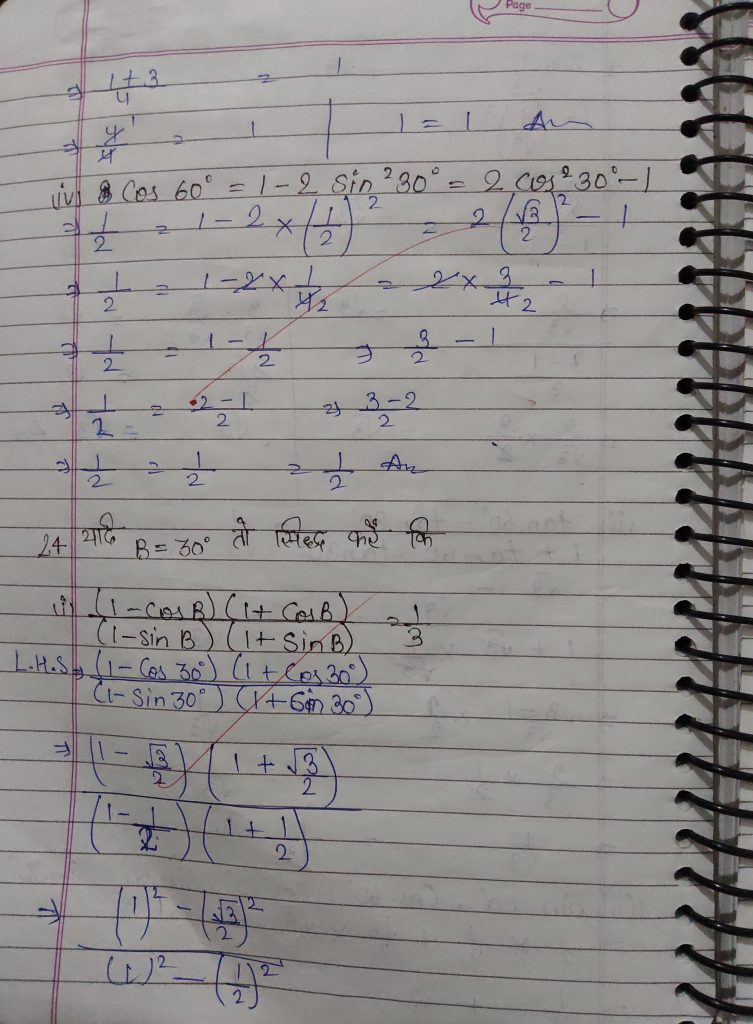 Page
⇒ (1+3)/4 = 1
⇒ 4/4 = 1 | 1 = 1 An
(iv) Cos 60° = 1 - 2 Sin²30° = 2 Cos²30° - 1
⇒ 1/2 = 1 - 2 × (1/2)² = 2(√3/2)² - 1
⇒ 1/2 = 1 - 2 × 1/4 2 = 2 × 3/4 2 - 1
⇒ 1/2 = 1 - 1/2 ⇒ 3/2 - 1
⇒ 1/2 = (2-1)/2 ⇒ (3-2)/2
⇒ 1/2 = 1/2 = 1/2 An
24 यदि B = 30° तो सिद्ध करें कि
(i) (1 - Cos B) (1 + Cos B) / (1 - Sin B) (1 + Sin B) = 1/3
L.H.S ⇒ (1 - Cos 30°) (1 + Cos 30°) / (1 - Sin 30°) (1 + Sin 30°)
⇒ (1 - √3/2) (1 + √3/2) / (1 - 1/2) (1 + 1/2)
⇒ (1)² - (√3/2)² / (1)² - (1/2)²